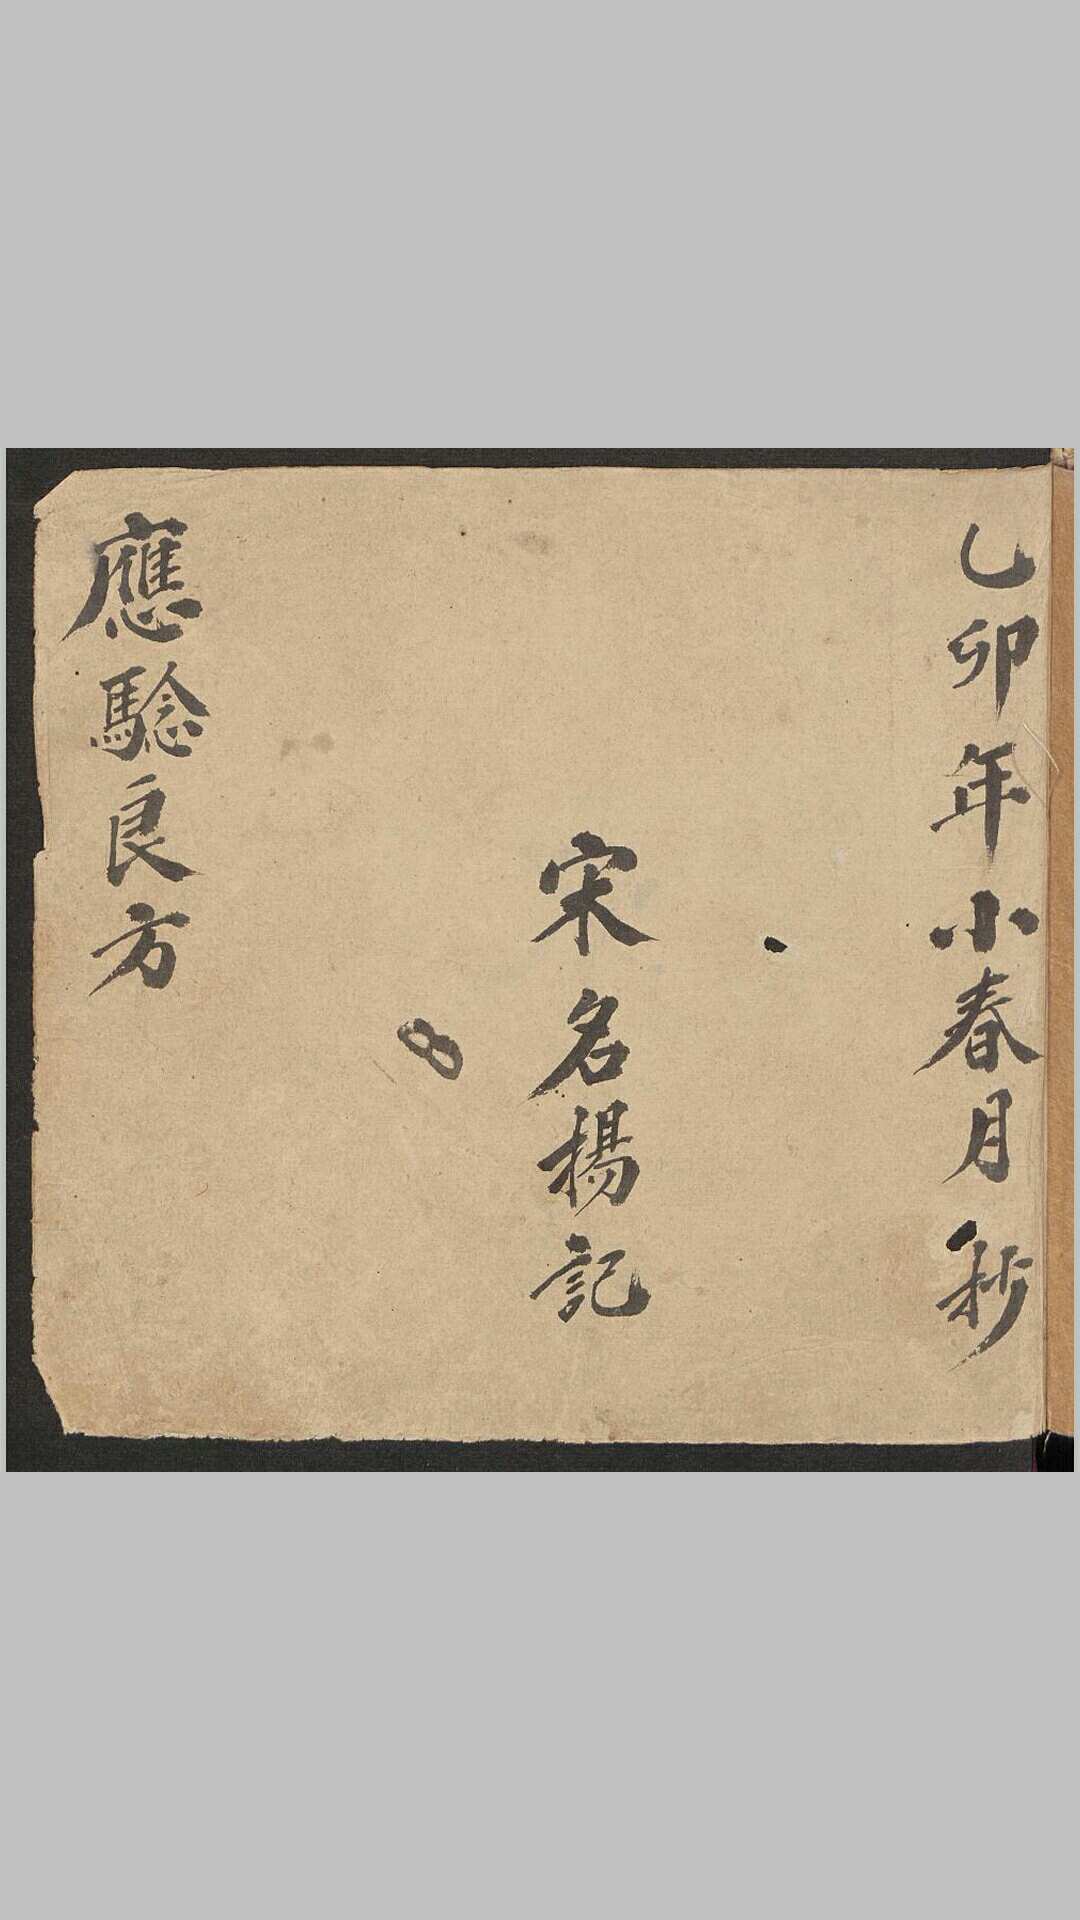 乙卯年小春月抄
宋名揚記
應騐良方